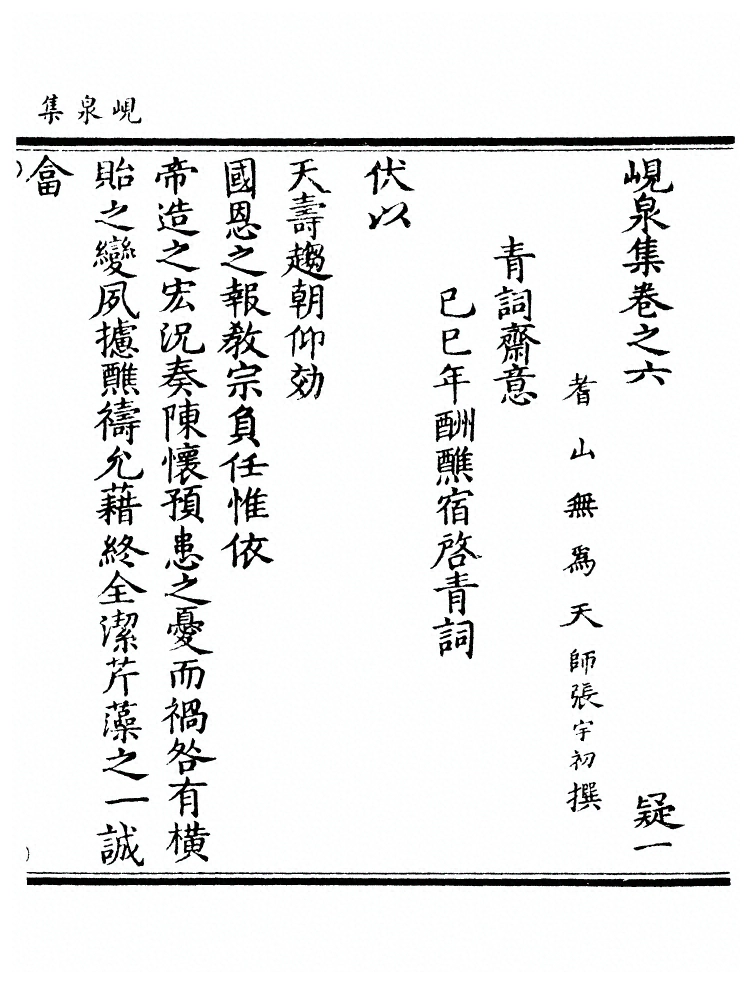 峴泉集
峴泉集卷之六 疑一
耆山無爲天師張宇初撰
青詞齋意
己巳年酬醮宿啓青詞
伏以
天壽趨朝仰効
國恩之報敎宗負任惟依
帝造之宏況奏陳懷預患之憂而禍咎有橫
貽之變夙攄醮禱允藉終全潔芹藻之一誠
畣